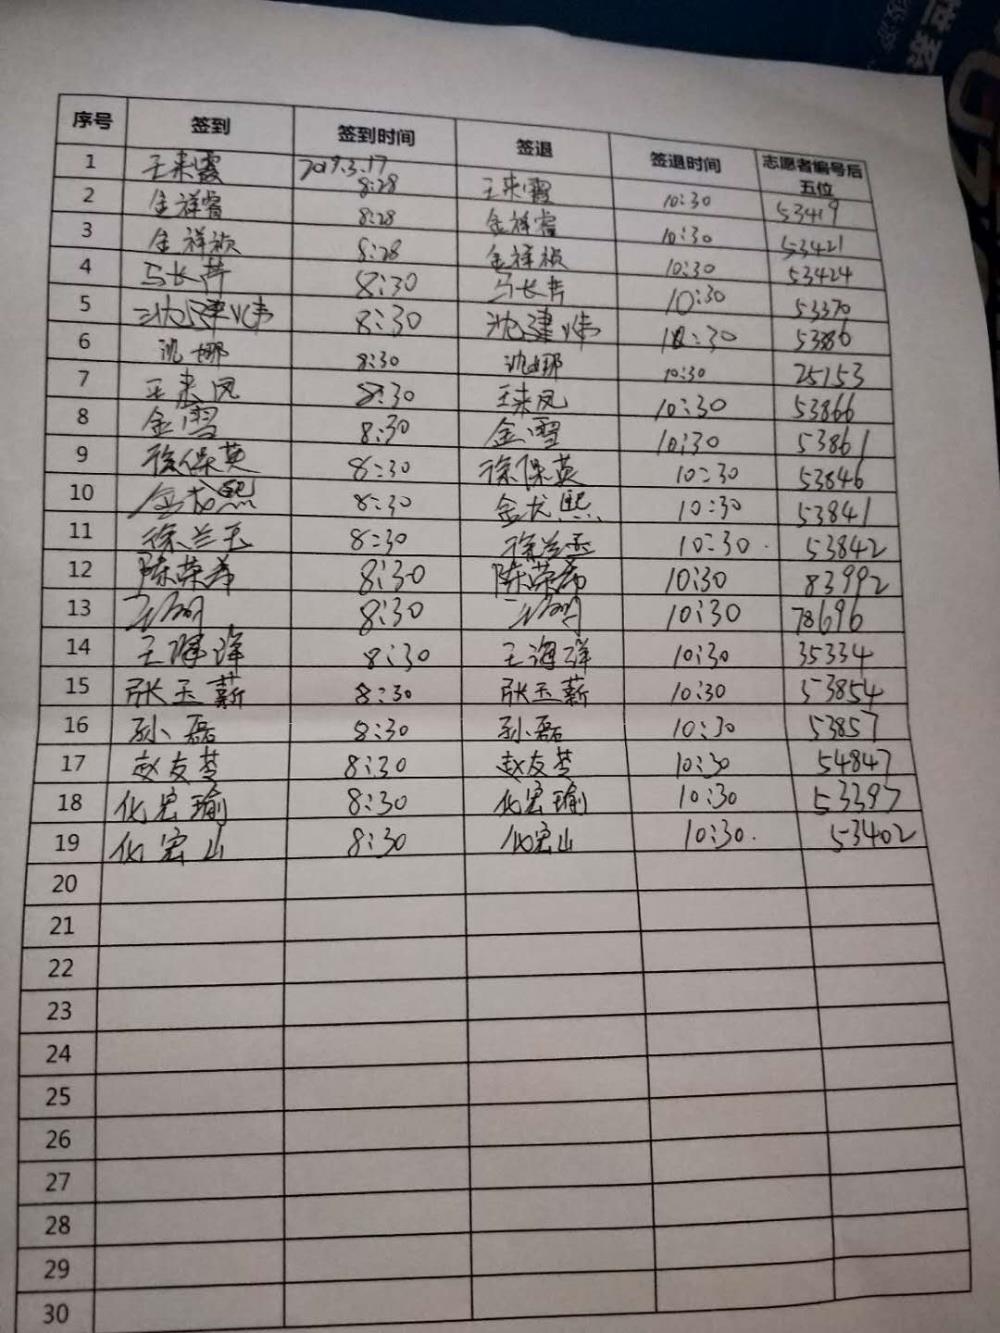 序号 签到 签到时间 签退 签退时间 志愿者编号后五位
1 王来霞 2019.3.17 8:28 王来霞 10:30 53419
2 金祥睿 8:28 金祥睿 10:30 53421
3 金祥祯 8:28 金祥祯 10:30 53424
4 马长芹 8:30 马长芹 10:30 53370
5 沈建伟 8:30 沈建伟 10:30
6 沈娜 8:30 沈娜 10:30 25153
7 王来凤 8:30 王来凤 10:30 53866
8 金雪 8:30 金雪 10:30 53861
9 徐保英 8:30 徐保英 10:30 53846
10 金龙熙 8:30 金龙熙 10:30 53841
11 徐兰玉 8:30 徐兰玉 10:30 53842
12 陈荣希 8:30 陈荣希 10:30 83992
13 8:30 10:30 78696
14 王海洋 8:30 王海洋 10:30 35334
15 张玉薪 8:30 张玉薪 10:30 53854
16 孙磊 8:30 孙磊 10:30 53857
17 赵友芩 8:30 赵友芩 10:30 54847
18 化宏瑜 8:30 化宏瑜 10:30 53397
19 化宏山 8:30 化宏山 10:30 53402
20
21
22
23
24
25
26
27
28
29
30